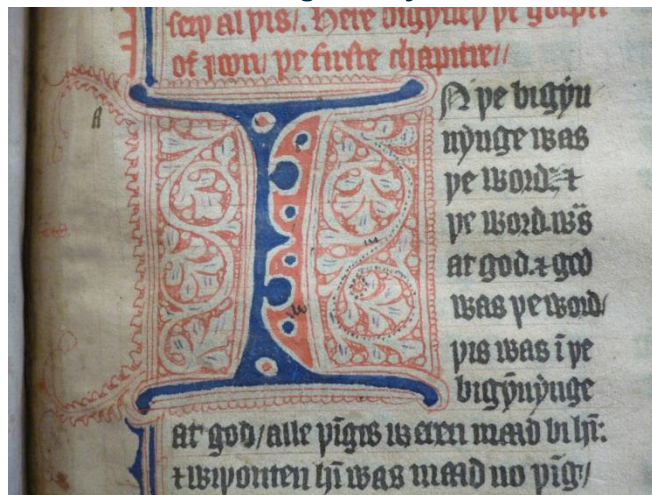 seiþ al þis/. Here bigynneþ þe gospel
of ioon þe firste chapitre//
IN þe bigẏn
nẏnge was
þe word. ⁊
þe word. was
at god. ⁊ god
was þe word/
þis was ī þe
bigẏnẏnge
at god/ alle þīgis weren maad bi hī:
⁊ wiþouten hī was maad no þīg/